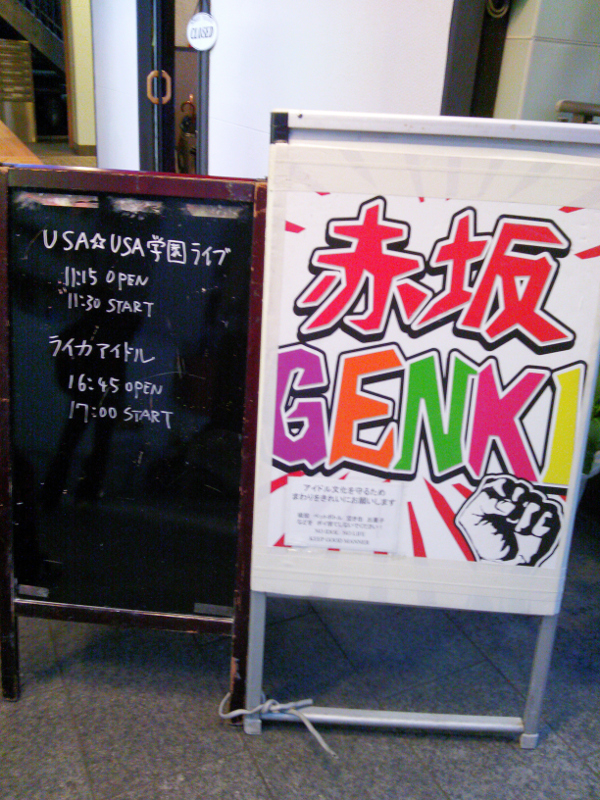 CLOSED
USA☆USA学園ライブ
11:15 OPEN
11:30 START
ライカアイドル
16:45 OPEN
17:00 START
赤坂
GENKI
アイドル文化を守るため
まわりをきれいにお願いします
NO IDOL, NO LIFE
KEEP GOOD MANNER